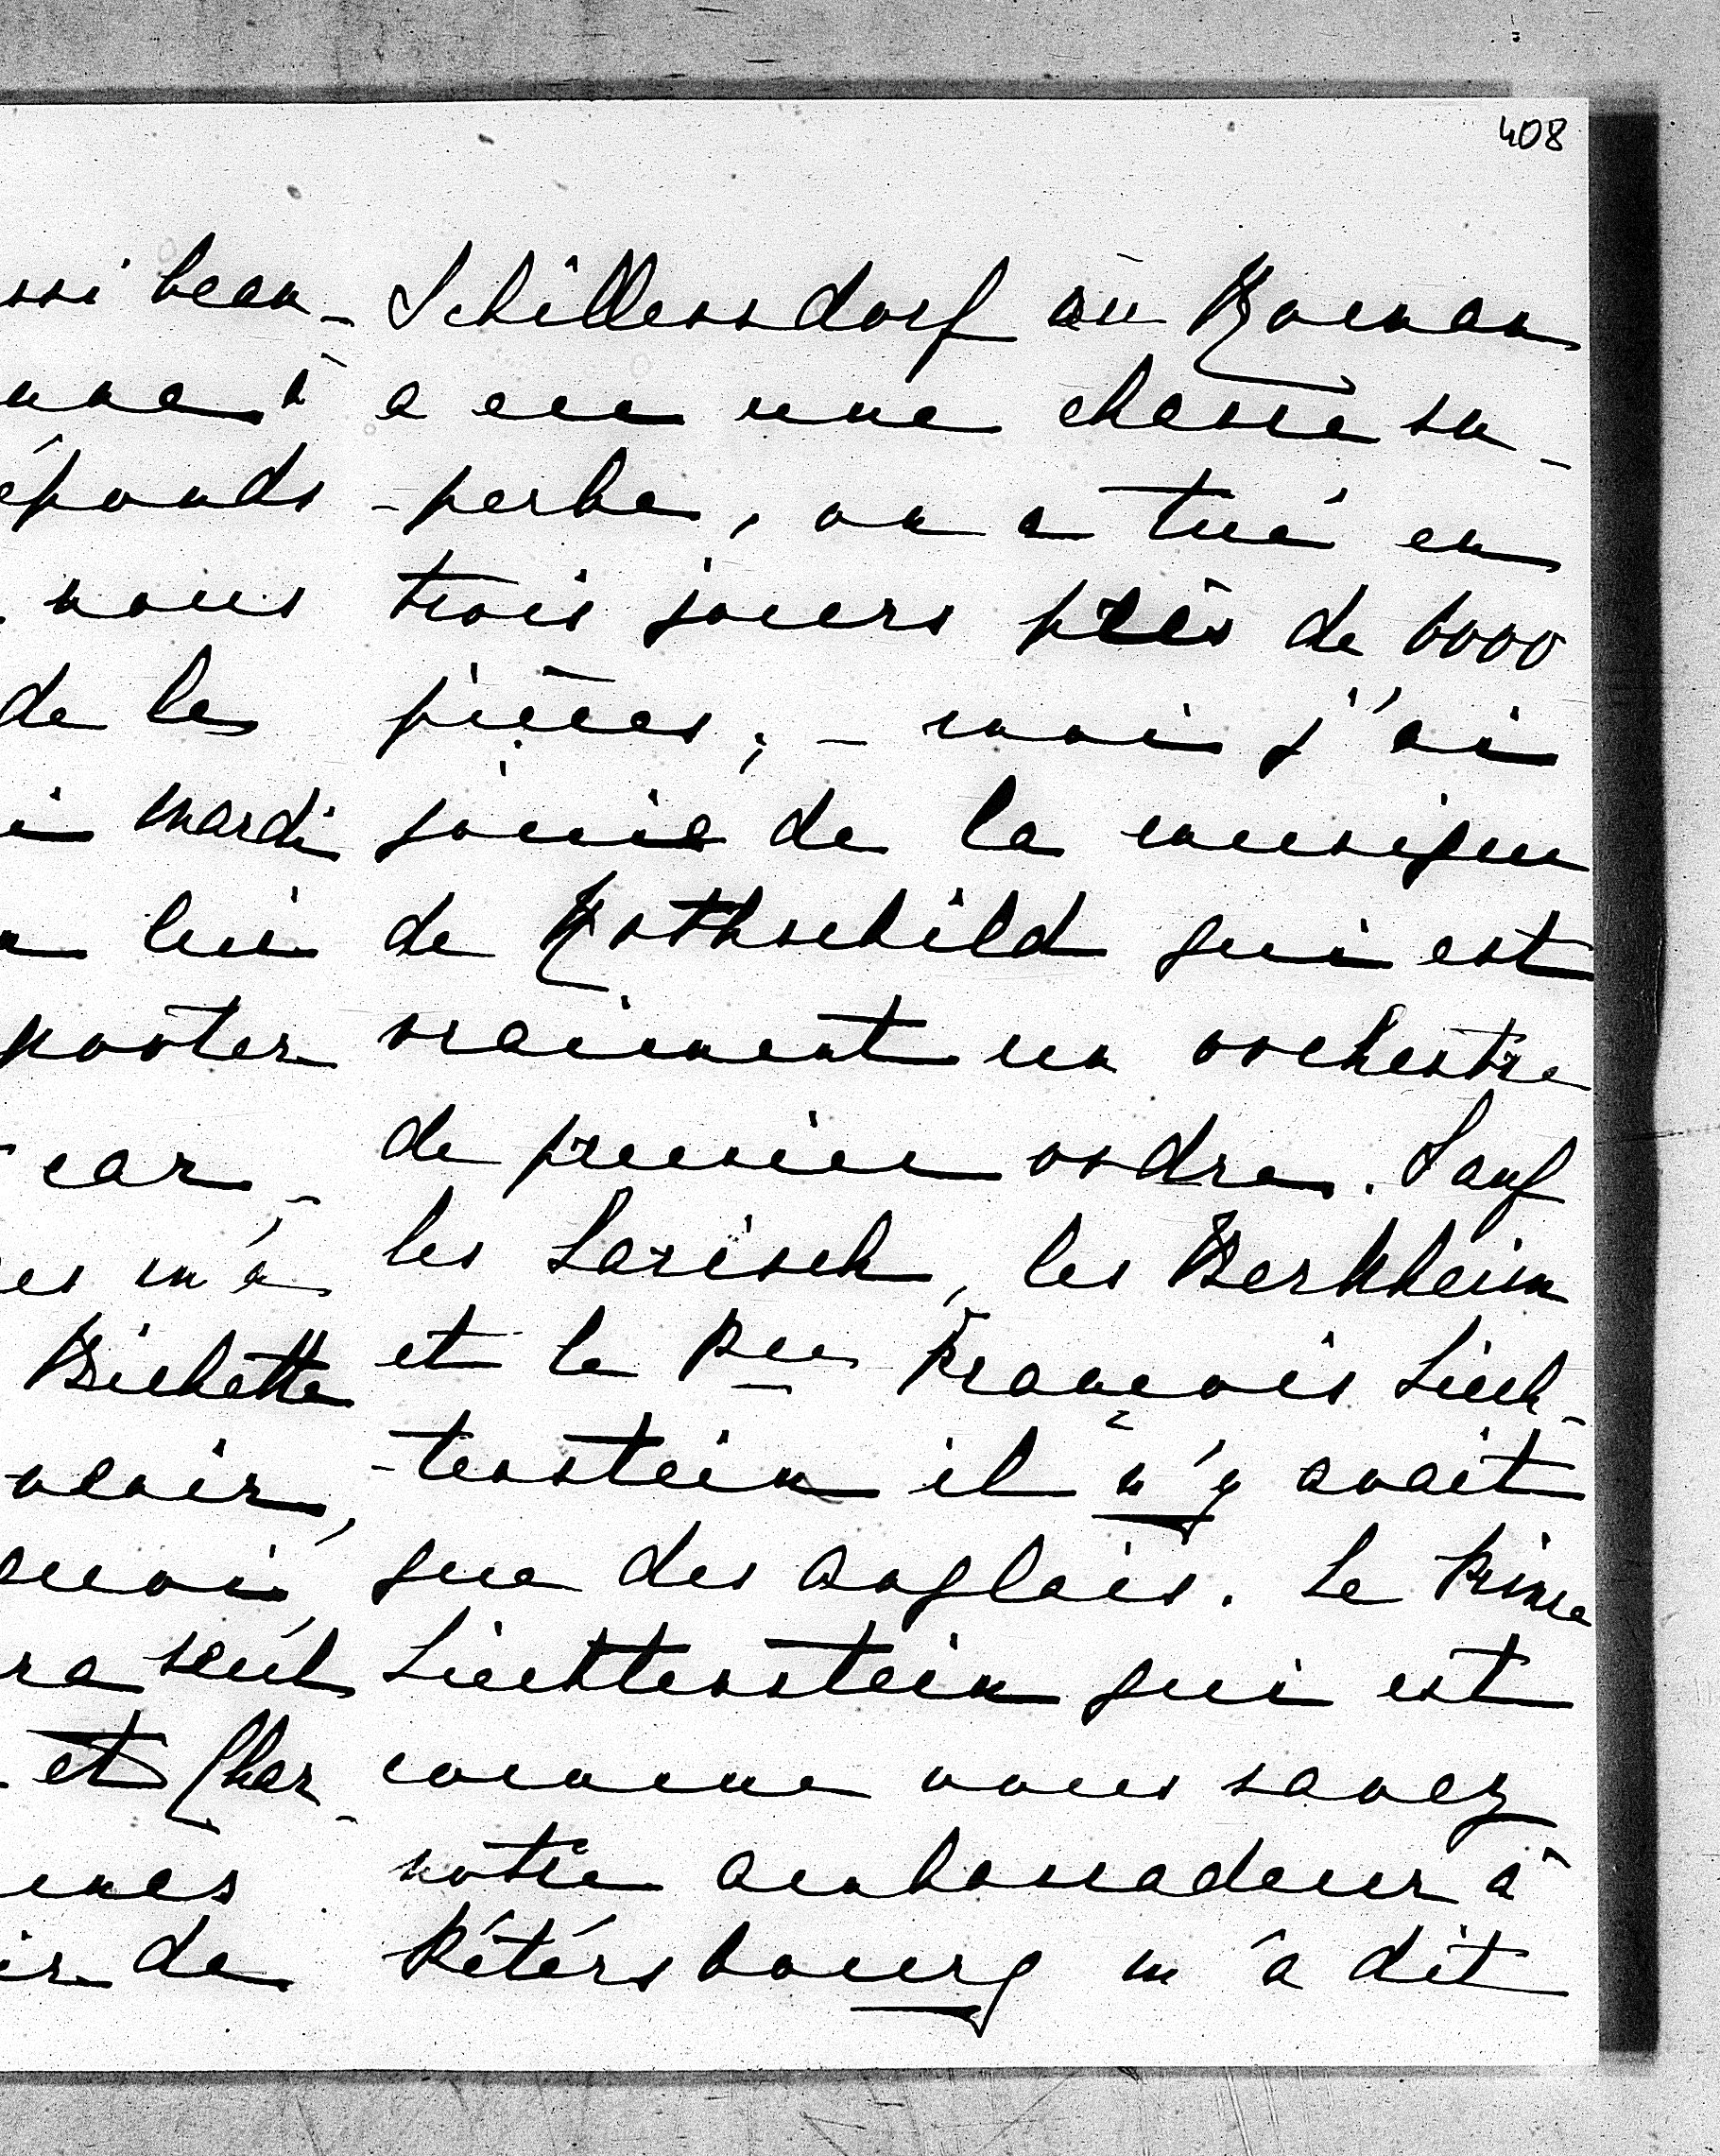 408
ssi beau-
à
éponds
nous
de les
mardi
lui
car,-
es m'a
Bichette
voir,
quoi,
ra seul
et Char-
ir de
Schillersdorf où Roman
a eu une chasse su-
-perbe, on a tué en
trois jours près de 6000
pièces; - moi j'ai
jouis de la musique
de Rothschild qui est
vraiment un orchestre
de premier ordre. Sauf
les Larisch, les Berkheim
et le Pce François Liech-
-tenstein il n'y avait
que des anglais. Le Prince
Liechtenstein qui est
comme vous savez
notre ambassadeur à
Pétérsbourg m'a dit